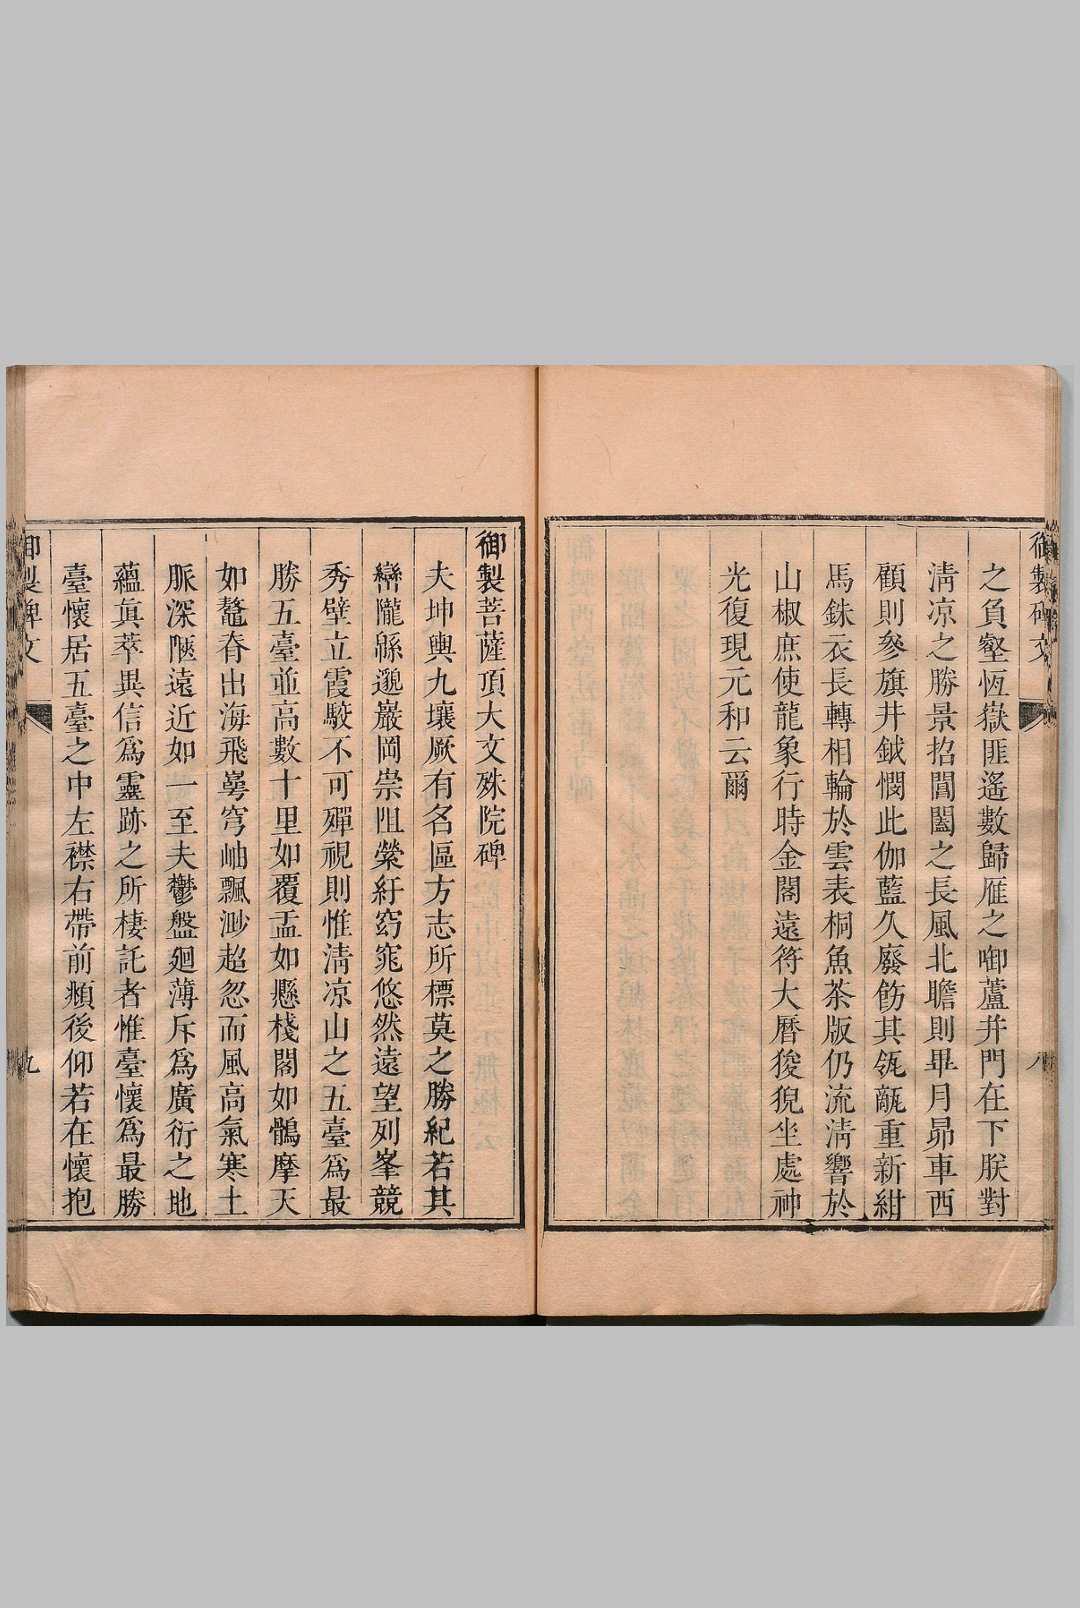 御製碑文
八
之負壑恆嶽匪遙數歸雁之啣蘆井門在下朕對
清凉之勝景掐閶闔之長風北瞻則畢月昴車西
顧則參旗井鉞憫此伽藍久廢飭其瓴甋重新紺
馬銖衣長轉相輪於雲表桐魚茶版仍流清響於
山椒庶使龍象行時金閣遠符大曆狻猊坐處神
光復現元和云爾
御製菩薩頂大文殊院碑
夫坤輿九壤厥有名區方志所標莫之勝紀若其
巒隴緜邈巖岡崇阻縈紆窈窕悠然遠望列峯競
秀壁立霞駮不可殫視則惟清凉山之五臺爲最
勝五臺並高數十里如覆盂如懸棧閣如鶻摩天
如鼇脊出海飛崿穹岫飄渺超忽而風高氣寒土
脈深陿遠近如一至夫鬱盤廻薄斥爲廣衍之地
蘊眞萃異信爲靈跡之所棲託者惟臺懷爲最勝
臺懷居五臺之中左襟右帶前頫後仰若在懷抱
御製碑文
九